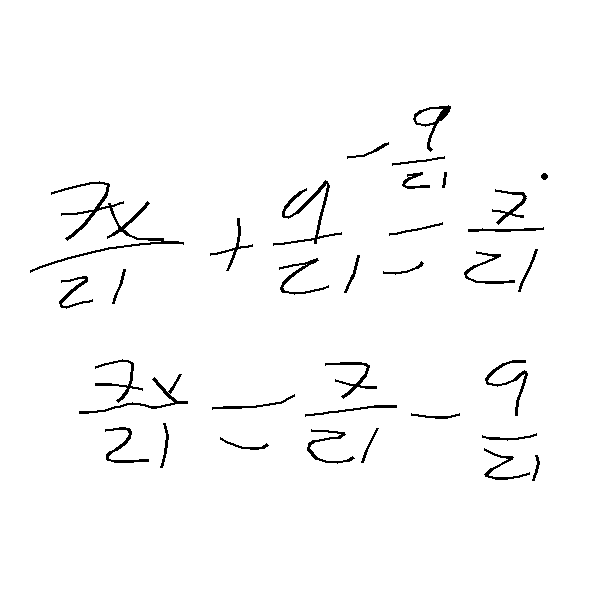 - 9/21
7x/21 + 9/21 = 7/21
7x/21 = 7/21 - 9/21